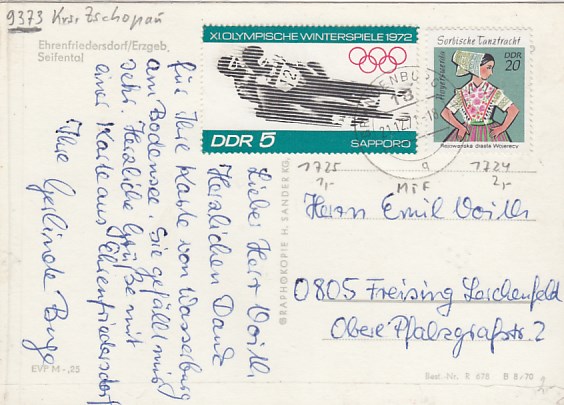 9373 Krs. Zschopau
Ehrenfriedersdorf/Erzgeb.
Seifental
XI. OLYMPISCHE WINTERSPIELE 1972
DDR 5
SAPPORO
Sorbische Tanztracht
DDR
20
Hoyerswerda
Rejowanska drasta Wojerecy
18
21.12.71-18
q
1725
1,-
MiF
1724
2,-
Lieber Herr Voith
Herzlichen Dank
für Ihre Karte von Wasserburg
am Bodensee. Sie gefällt mir
sehr. Herzliche Grüße mit
einer Karte aus Ehrenfriedersdorf
Ihre Gerlinde
Herrn Emil Voith
0805 Freising Lerchenfeld
Obere Pfalzgrafstr. 2
GRAPHOKOPIE H. SANDER KG,
EVP M -,25
Best.-Nr. R 678 B 8/70
2,-